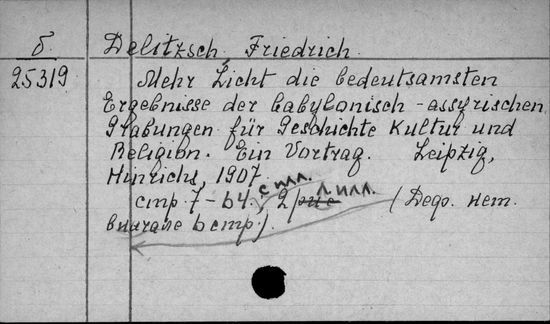 б
Delitzsch Friedrich
25319
Mehr Licht die bedeutsamsten
Ergebnisse der babylonisch-assyrischen
Grabungen für Geschichte Kultur und
Religion. Ein Vortrag. Leipzig,
Hinrichs, 1907.
с илл. л. илл.
стр. 7-64. 2 (Дефо. нем.
вначале 6 стр.).